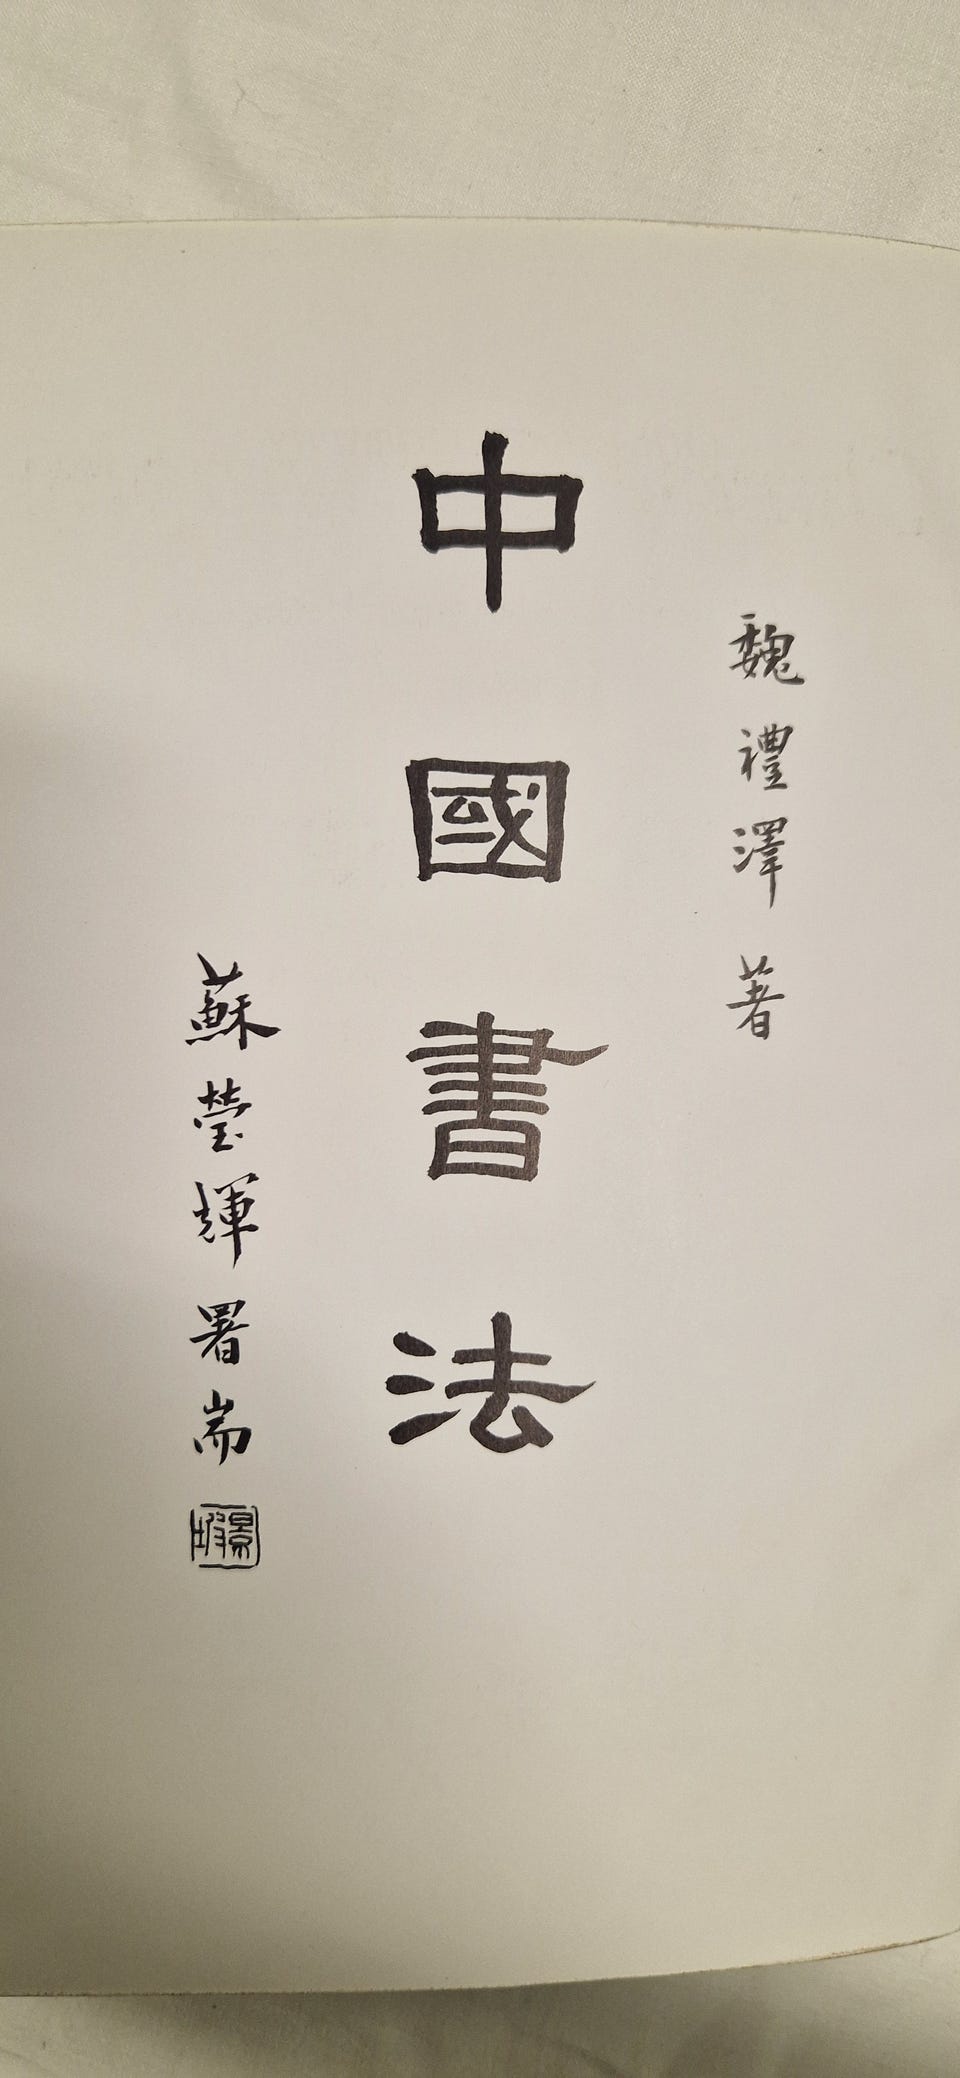 魏禮澤著
中國書法
蘇瑩輝署耑